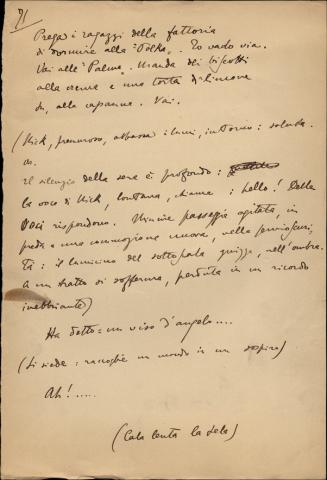 71
Prega i ragazzi della fattoria
di dormire alla "Polka". Io vado via.
Vai alle "Palme". Manda dei biscotti
alla crema e una torta di limone
su, alla capanna. Vai.
(Nick, premuroso, abbassa i lumi, intorno: saluta.
Il silenzio della sera è profondo:
la voce di Nick, lontana, chiama: hello! Delle
voci rispondono. Minnie passeggia agitata, in
preda a una commozione nuova, nella
: il lumicino del sottoscala guizza, nell'ombra.
A un tratto si sofferma, perduta in un ricordo
inebbriante)
Ha detto: un viso d'angelo....
(Si siede: raccoglie un mondo in un sospiro)
Ah!.....
(Cala lenta la tela)